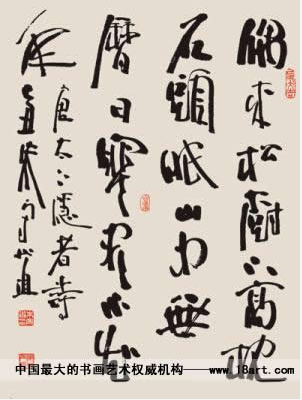 偶来松樹下高枕
石頭眠山中無
曆日寒盡不知
年
唐太上隱者詩
中国最大的书画艺术权威机构——www.18art.com